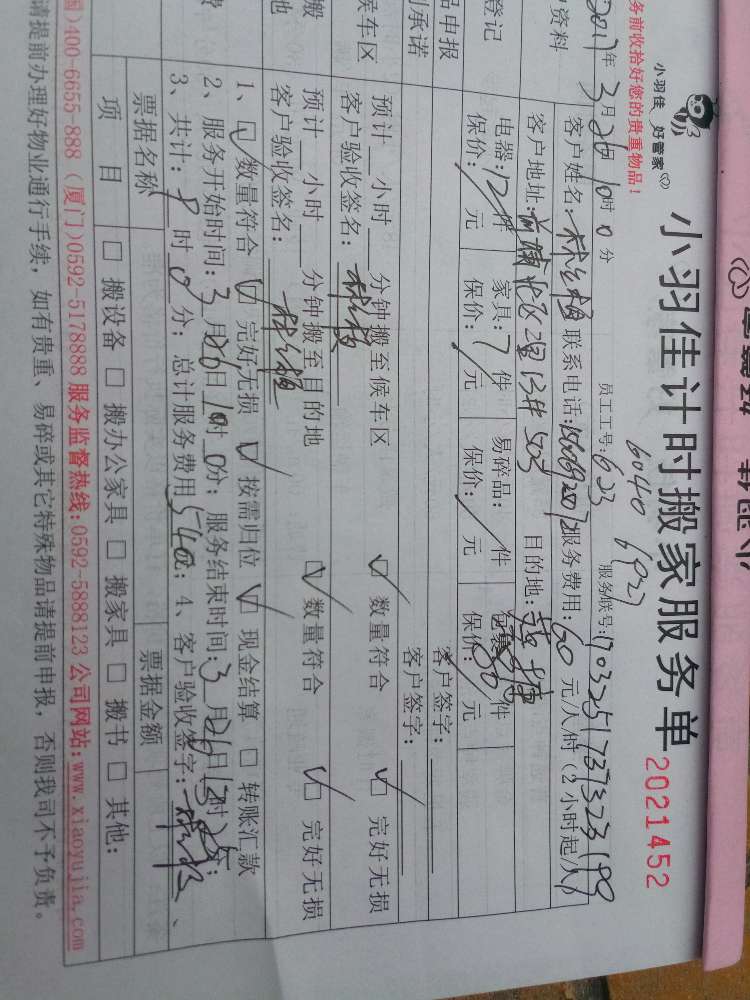 小羽佳 好管家
小羽佳计时搬家服务单
2021452
务前收拾好您的贵重物品！
6040 6927
2017年3月26日10时0分 员工工号：623 服务联号：
户资料 客户姓名： 联系电话： 服务费用：60元/人/时（2小时起/人）
客户地址： 503 目的地：
登记 电器：12件 家具：7件 易碎品：/件 件
保价：/元 保价：/元 保价：/元 保价： 元
品申报 客户签字：
承诺 客户签字：
候车区 预计__小时__分钟搬至候车区 数量符合 完好无损
客户验收签名：
搬 预计__小时__分钟搬至目的地 数量符合 完好无损
地 客户验收签名：
1、数量符合 完好无损 按需归位 现金结算 转账汇款
2、服务开始时间：3月26日10时0分；服务结束时间：3月26日13时 分；
费 3、共计：9时0分；总计服务费用540元；4、客户验收签字： 、
票据名称 票据金额
项目 搬设备 搬办公家具 搬家具 搬书 其他：
国)400-6655-888（厦门)0592-5178888 服务监督热线：0592-5888123 公司网站：www.xiaoyujia.com
请提前办理好物业通行手续，如有贵重、易碎或其它特殊物品请提前申报，否则我司不予负责。